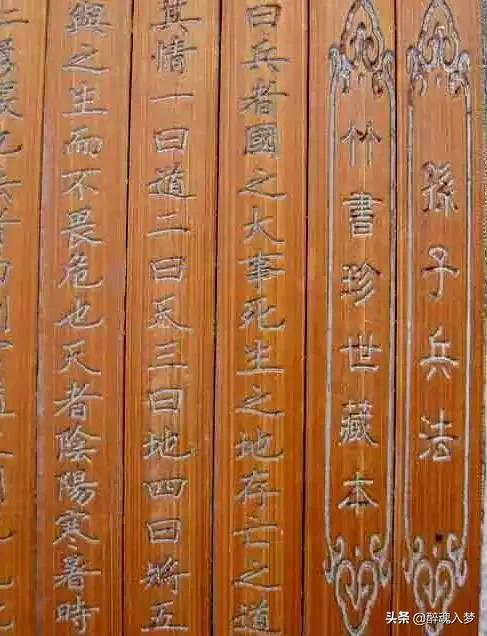 孫子兵法
竹書珍世藏本
曰兵者國之大事死生之地存亡之道
其情一曰道二曰天三曰地四曰將五
與之生而不畏危也天者陰陽寒暑時
头条 @醉魂入梦